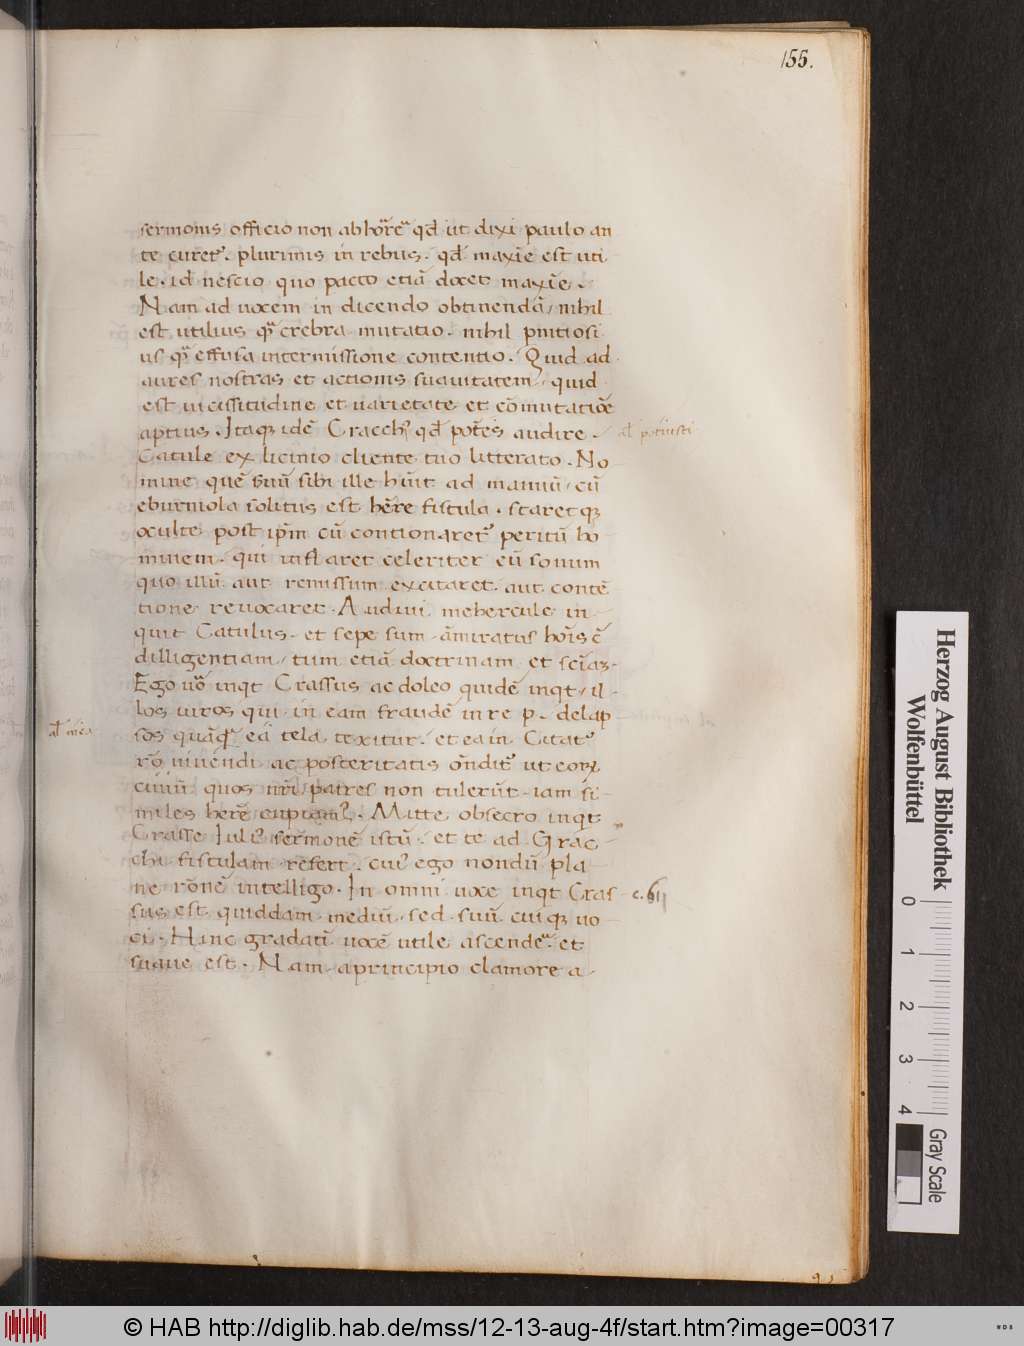 155.
sermonis officio non abhorrēᵗ qđ ut dixi paulo an
te curet᷒. plurimis in rebus. qđ maxīe est uti
le. id nescio quo pacto etiā docet maxīe.
Nam ad uocem in dicendo obtinendā, nihil
est utilius qᷓ crebra mutatio. nihil pnitiosi
us qᷓ effusa intermissione contentio. Quid ad
aures nostras et actionis suauitatem, quid
est uicissitudine et uarietate et cōmutatiōe
aptius. Itaqꝫ idē Gracch᷒ qđ potēs audire.
al potuisti
Catule ex licinio cliente tuo litterato. No
mine quē suū sibi ille hūit ad manū, cū
eburniola solitus est hēre fistula. staret qꝫ
oculte post ip̄m cū contionaret᷒ peritū ho
minem. qui inflaret celeriter eū sonum
quo illū aut remissum excitaret. aut contē
tione reuocaret. Audiui mehercule in
quit Catulus. et sepe sum āmiratus hoīs c̄
dilligentiam, tum etiā doctrinam et sciāꝫ
Ego uō inqt Crassus ac doleo quidē inqt, il
los uiros qui in eam fraudē in re p. delap
sos quāqᷓ ea tela texitur. et ea in Citat᷒
rō uiuendi ac posteritatis ōndit᷒ ut eoꝝ
ciuiū quos nr̄i patres non tulerūt iam si
miles hērē cupiam᷒. Mitte obsecro inqt
Crasse Iuli᷒ sermonē istū. et te ad Grac
chi fistulam refert. cui᷒ ego nondū pla
ne rōnē intelligo. In omni uoce inqt Cras
sus est quiddam mediū, sed suū cuiqꝫ uo
ci. Hinc gradatī uocē utile ascendēᵉ et
suaue est. Nam a principio clamore a
Herzog August Bibliothek
Wolfenbüttel
0 1 2 3 4
Gray Scale
© HAB http://diglib.hab.de/mss/12-13-aug-4f/start.htm?image=00317